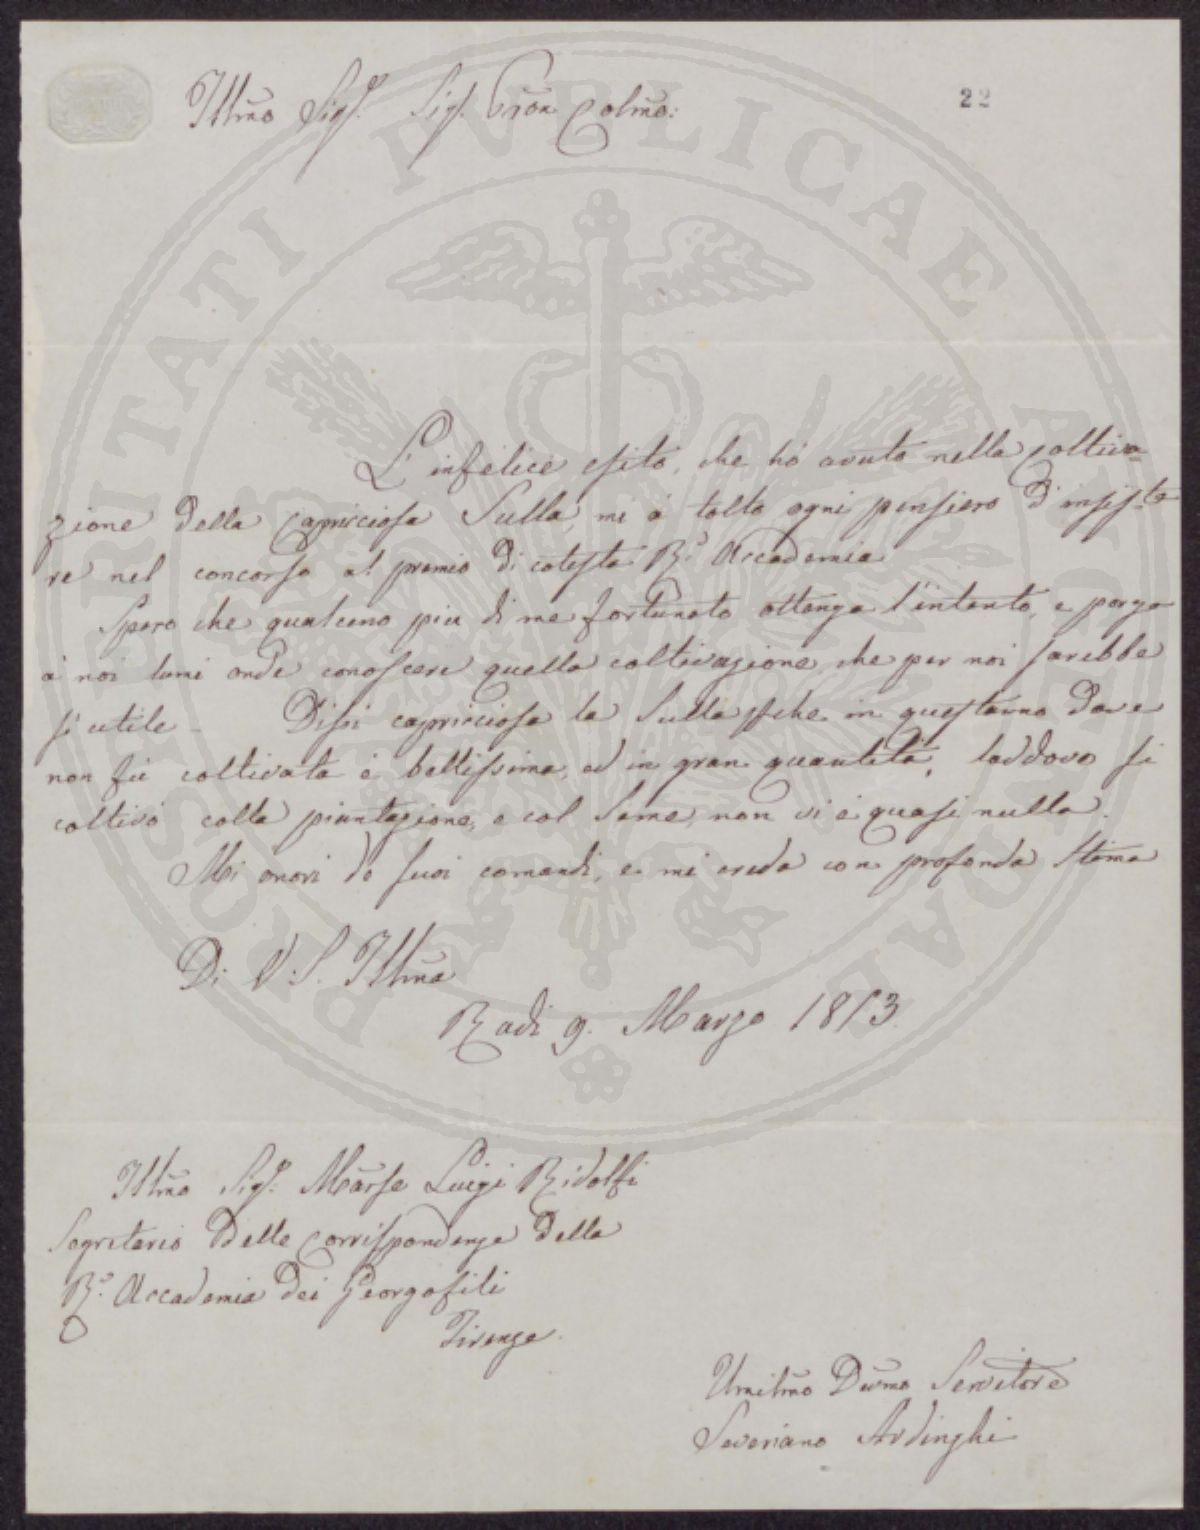 22
Ill̃mo Sigr. Sig. Pron Colm̃o:
L'infelice esito, che hò avuto nella coltiva=
zione della Capricciosa Sulla, mi à tolto ogni pensiero d'insiste
re nel concorso al premio di cotesta R.e Accademia
Spero che qualcuno più di me fortunato ottenga l'intento, e porga
à noi lumi onde conoscere quella coltivazione, che per noi sarebbe
sì utile - Dissi capricciosa la Sulla, che in quest'anno dove
non fù coltivata è bellissima, ed in gran quantità, laddove si
coltivò colla piantagione, e col Seme, non vi è quasi nulla.
Mi onori de suoi comandi, e mi creda con profonda Stima
Di V.S. Ill̃ma
Radi 9. Marzo 1853.
Ill̃mo Sigr. Marse Luigi Ridolfi
Segretario delle Corrispondenze della
R.e Accademia dei Georgofili
Firenze.
Umil̃mo Dev̄mo Servitore
Severiano Ardinghi
PROSPERITATI PVBLICAE AVGENDAE